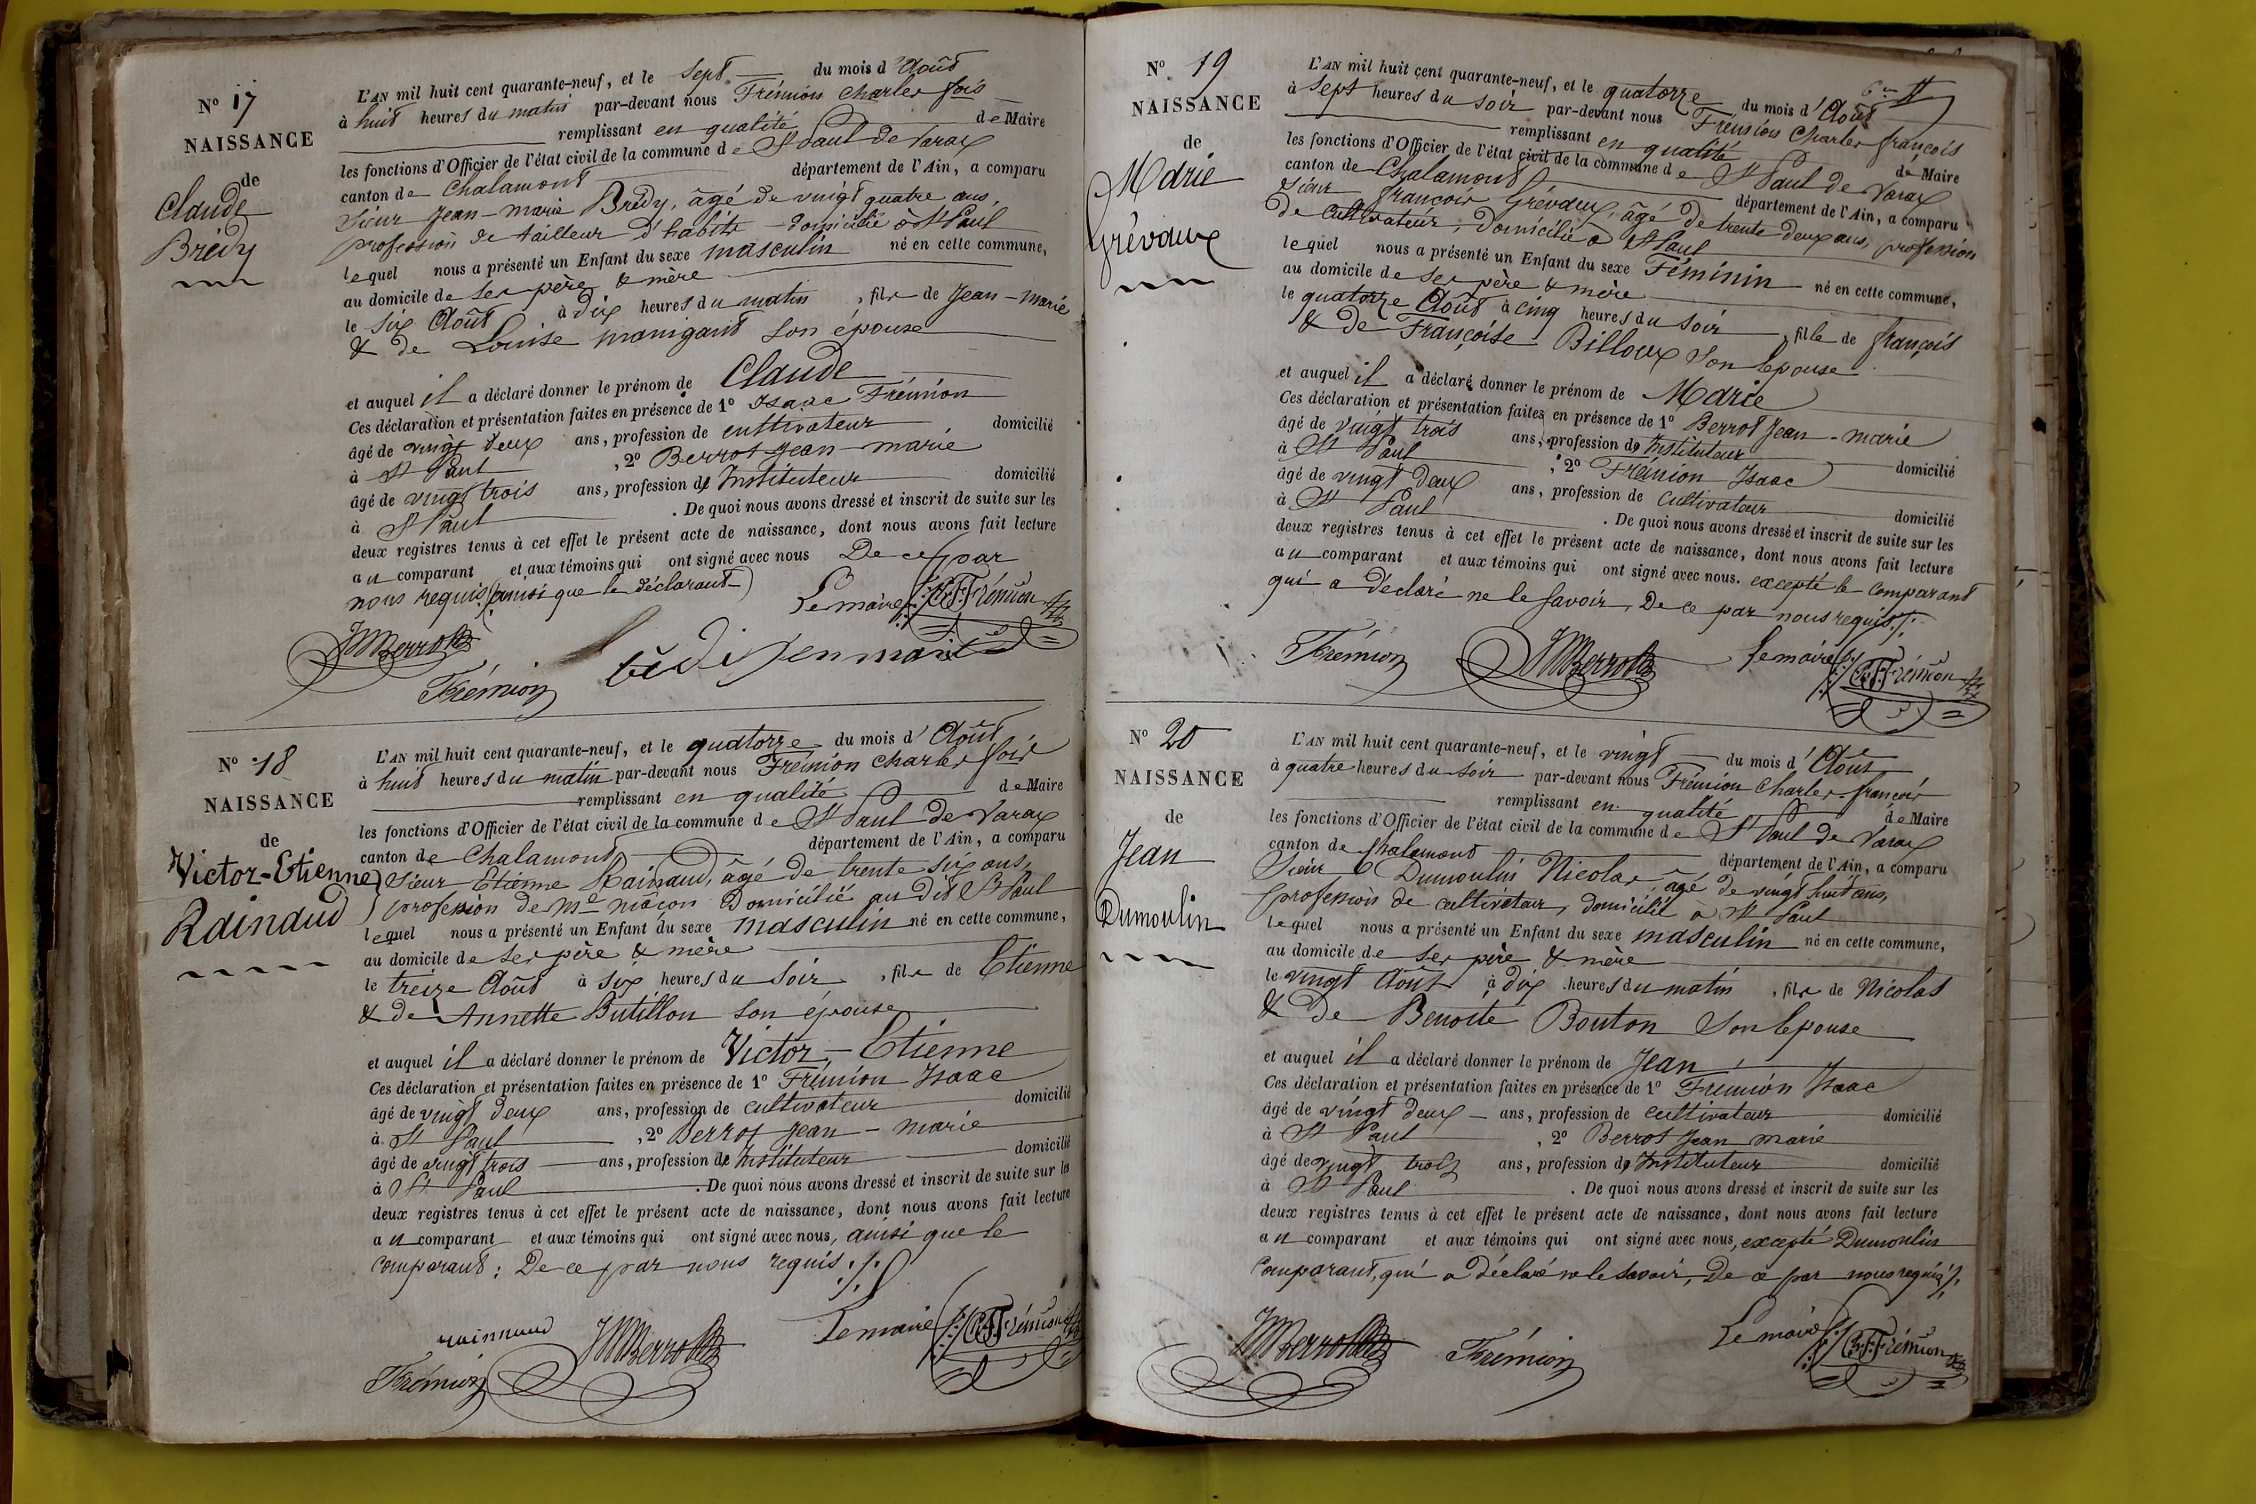 N° 17
NAISSANCE
de
Claude
Brédy
L'AN mil huit cent quarante-neuf, et le Sept du mois d'Août
à huit heures du matin par-devant nous Frémion Charles fois
remplissant en qualité de Maire
les fonctions d'Officier de l'état civil de la commune de St Paul de Varax
canton de Chalamont département de l'Ain, a comparu
Sieur Jean-marie Brédy, âgé de vingt quatre ans,
profession de tailleur d'habits domicilié à St Paul
lequel nous a présenté un Enfant du sexe masculin né en cette commune,
au domicile de ses père & mère
le six Août à dix heures du matin, fils de Jean-marie
& de Louise manigant son épouse
et auquel il a déclaré donner le prénom de Claude
Ces déclaration et présentation faites en présence de 1° Isaac Frémion
âgé de vingt deux ans, profession de cultivateur domicilié
à St Paul, 2° Berrot Jean-marie
âgé de vingt trois ans, profession de Instituteur domicilié
à St Paul. De quoi nous avons dressé et inscrit de suite sur les
deux registres tenus à cet effet le présent acte de naissance, dont nous avons fait lecture
au comparant et aux témoins qui ont signé avec nous De ce par
nous requis (ainsi que le déclarant)
Le maire Ch. F. Frémion
JMBerrot
Frémion
N° 18
NAISSANCE
de
Victor-Etienne
Rainaud
L'AN mil huit cent quarante-neuf, et le quatorze du mois d'Août
à huit heures du matin par-devant nous Frémion Charles fois
remplissant en qualité de Maire
les fonctions d'Officier de l'état civil de la commune de St Paul de Varax
canton de Chalamont département de l'Ain, a comparu
Sieur Etienne Rainaud, âgé de trente six ans,
profession de Me maçon Domicilié au dit St Paul
lequel nous a présenté un Enfant du sexe masculin né en cette commune,
au domicile de ses père & mère
le treize Août à six heures du Soir, fils de Etienne
& de Annette Butillon son épouse
et auquel il a déclaré donner le prénom de Victor-Etienne
Ces déclaration et présentation faites en présence de 1° Frémion Isaac
âgé de vingt deux ans, profession de cultivateur domicilié
à St Paul, 2° Berrot Jean-marie
âgé de vingt trois ans, profession de Instituteur domicilié
à St Paul. De quoi nous avons dressé et inscrit de suite sur les
deux registres tenus à cet effet le présent acte de naissance, dont nous avons fait lecture
au comparant et aux témoins qui ont signé avec nous, ainsi que le
comparant: De ce par nous requis./.
rainnaud JMBerrot Le maire Ch. F. Frémion
Frémion
N° 19
NAISSANCE
de
Marie
Grévaux
L'AN mil huit cent quarante-neuf, et le quatorze du mois d'Août
à Sept heures du soir par-devant nous Frémion Charles françois
remplissant en qualité de Maire
les fonctions d'Officier de l'état civil de la commune de St Paul de Varax
canton de Chalamont département de l'Ain, a comparu
Sieur françois Grévaux, âgé de trente deux ans, profession
de cultivateur, domicilié à St Paul
lequel nous a présenté un Enfant du sexe Féminin né en cette commune,
au domicile de ses père & mère
le quatorze Août à cinq heures du soir, fille de françois
& de Françoise Billoux son épouse
et auquel il a déclaré donner le prénom de Marie
Ces déclaration et présentation faites en présence de 1° Berrot Jean-marie
âgé de vingt trois ans, profession de Instituteur domicilié
à St Paul, 2° Frémion Isaac
âgé de vingt deux ans, profession de cultivateur domicilié
à St Paul. De quoi nous avons dressé et inscrit de suite sur les
deux registres tenus à cet effet le présent acte de naissance, dont nous avons fait lecture
au comparant et aux témoins qui ont signé avec nous. excepté le comparant
qui a déclaré ne le savoir, De ce par nous requis./.
Frémion JMBerrot Le maire Ch. F. Frémion
N° 20
NAISSANCE
de
Jean
Dumoulin
L'AN mil huit cent quarante-neuf, et le vingt du mois d'Août
à quatre heures du soir par-devant nous Frémion Charles françois
remplissant en qualité de Maire
les fonctions d'Officier de l'état civil de la commune de St Paul de Varax
canton de Chalamont département de l'Ain, a comparu
Sieur Dumoulin Nicolas âgé de vingt huit ans,
profession de cultivateur, domicilié à St Paul
lequel nous a présenté un Enfant du sexe masculin né en cette commune,
au domicile de ses père & mère
le vingt Août à dix heures du matin, fils de Nicolas
& de Benoite Bouton son épouse
et auquel il a déclaré donner le prénom de Jean
Ces déclaration et présentation faites en présence de 1° Frémion Isaac
âgé de vingt deux ans, profession de cultivateur domicilié
à St Paul, 2° Berrot Jean marie
âgé de vingt trois ans, profession de Instituteur domicilié
à St Paul. De quoi nous avons dressé et inscrit de suite sur les
deux registres tenus à cet effet le présent acte de naissance, dont nous avons fait lecture
au comparant et aux témoins qui ont signé avec nous, excepté Dumoulin
comparant, qui a déclaré ne le savoir, De ce par nous requis./.
JMBerrot Frémion Le maire Ch. F. Frémion